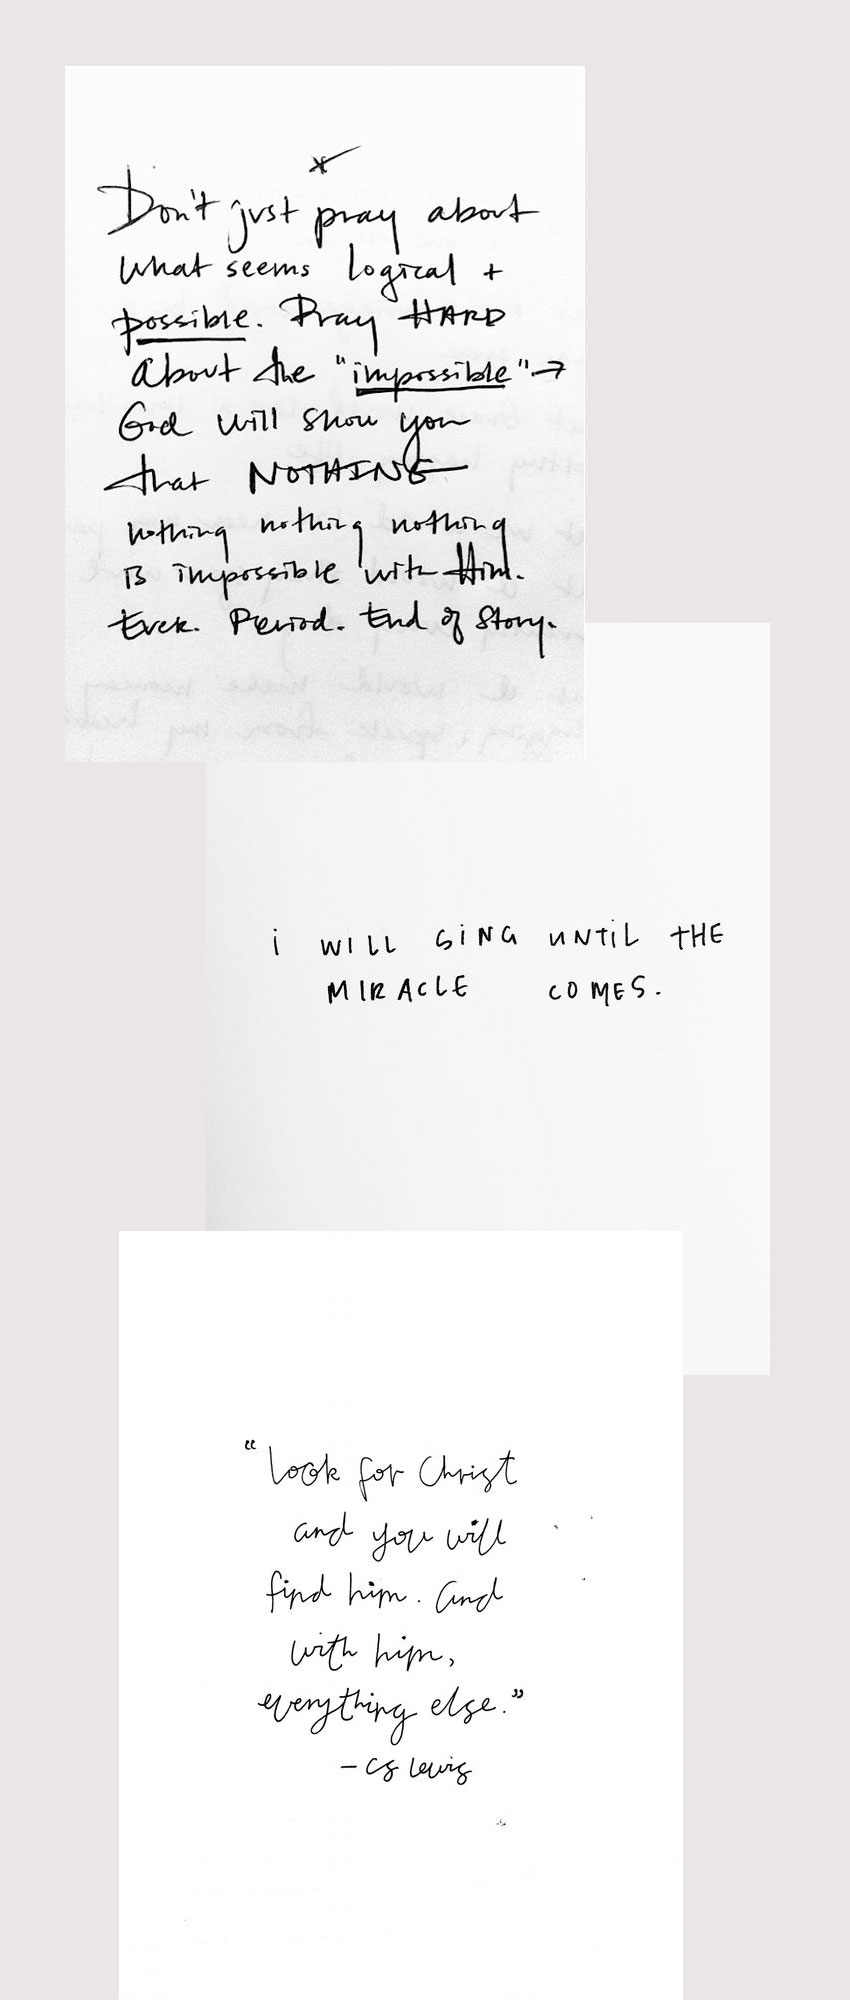 Don't just pray about
what seems logical +
possible. Pray HARD
about the "impossible" →
God will show you
that NOTHING
nothing nothing nothing
is impossible with Him.
Ever. Period. End of Story.
i WILL SiNG UNTiL THE
MIRACLE COMES.
"look for Christ
and you will
find him. And
with him,
everything else."
- CS Lewis